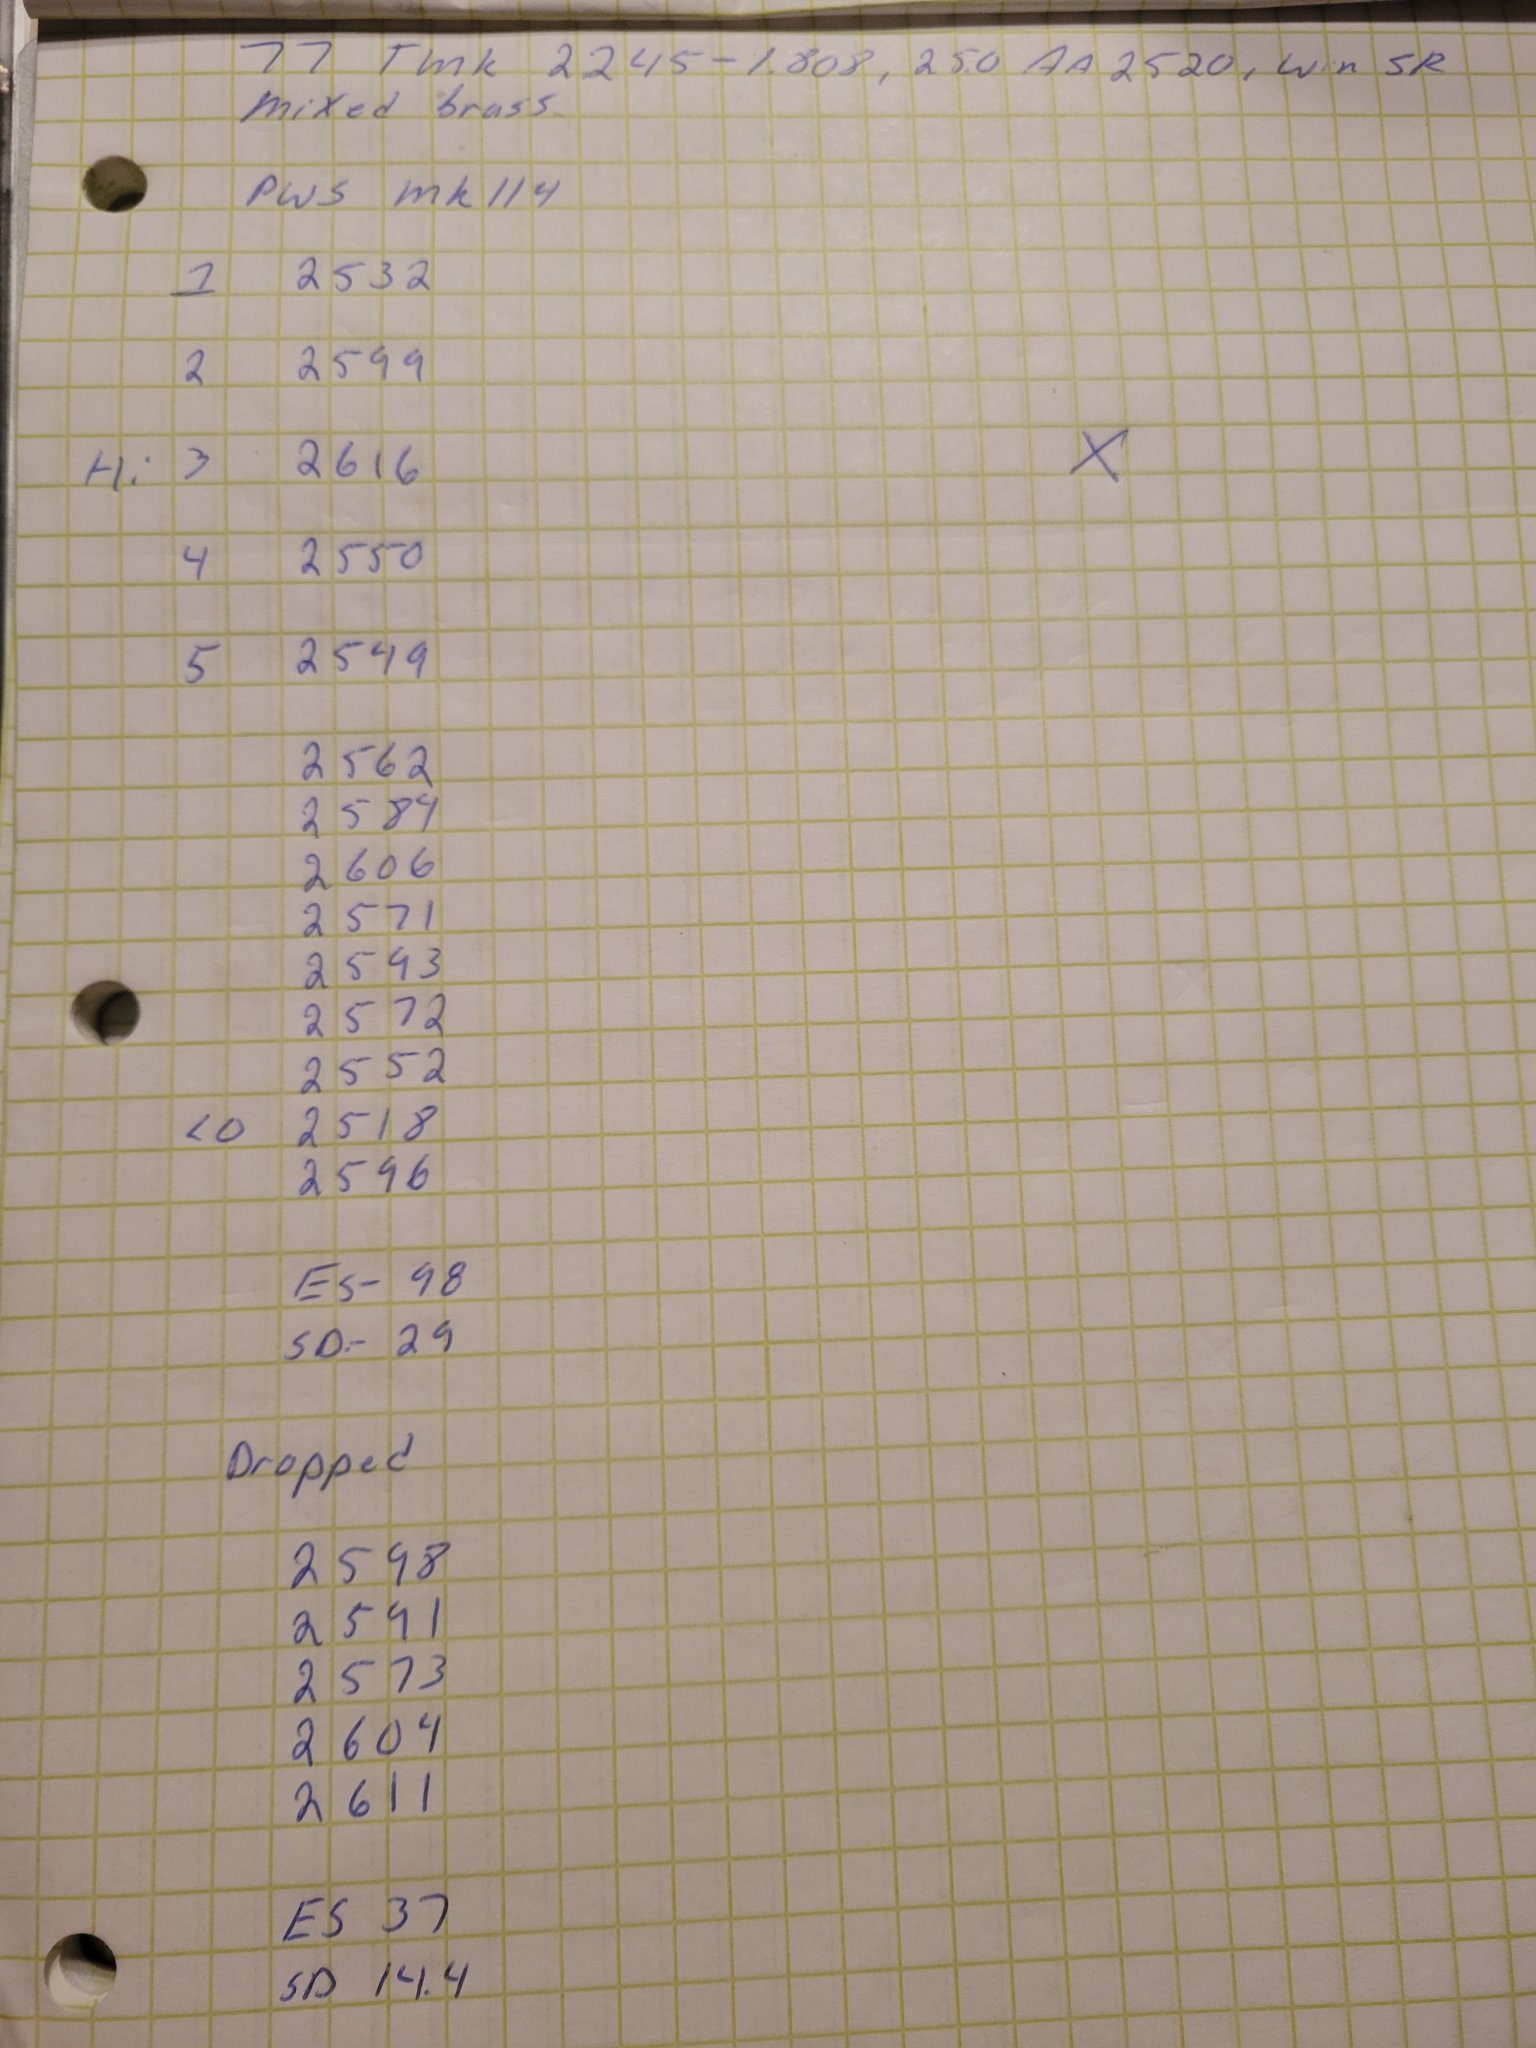 77 Tmk 2.245-1.808, 25.0 AA 2520, Win SR
mixed brass
PWS mk114
1 2532
2 2599
Hi 3 2616
X
4 2550
5 2549
2562
2584
2606
2571
2593
2572
2552
LO 2518
2596
ES- 98
SD- 29
Dropped
2598
2591
2573
2604
2611
ES 37
SD 14.4